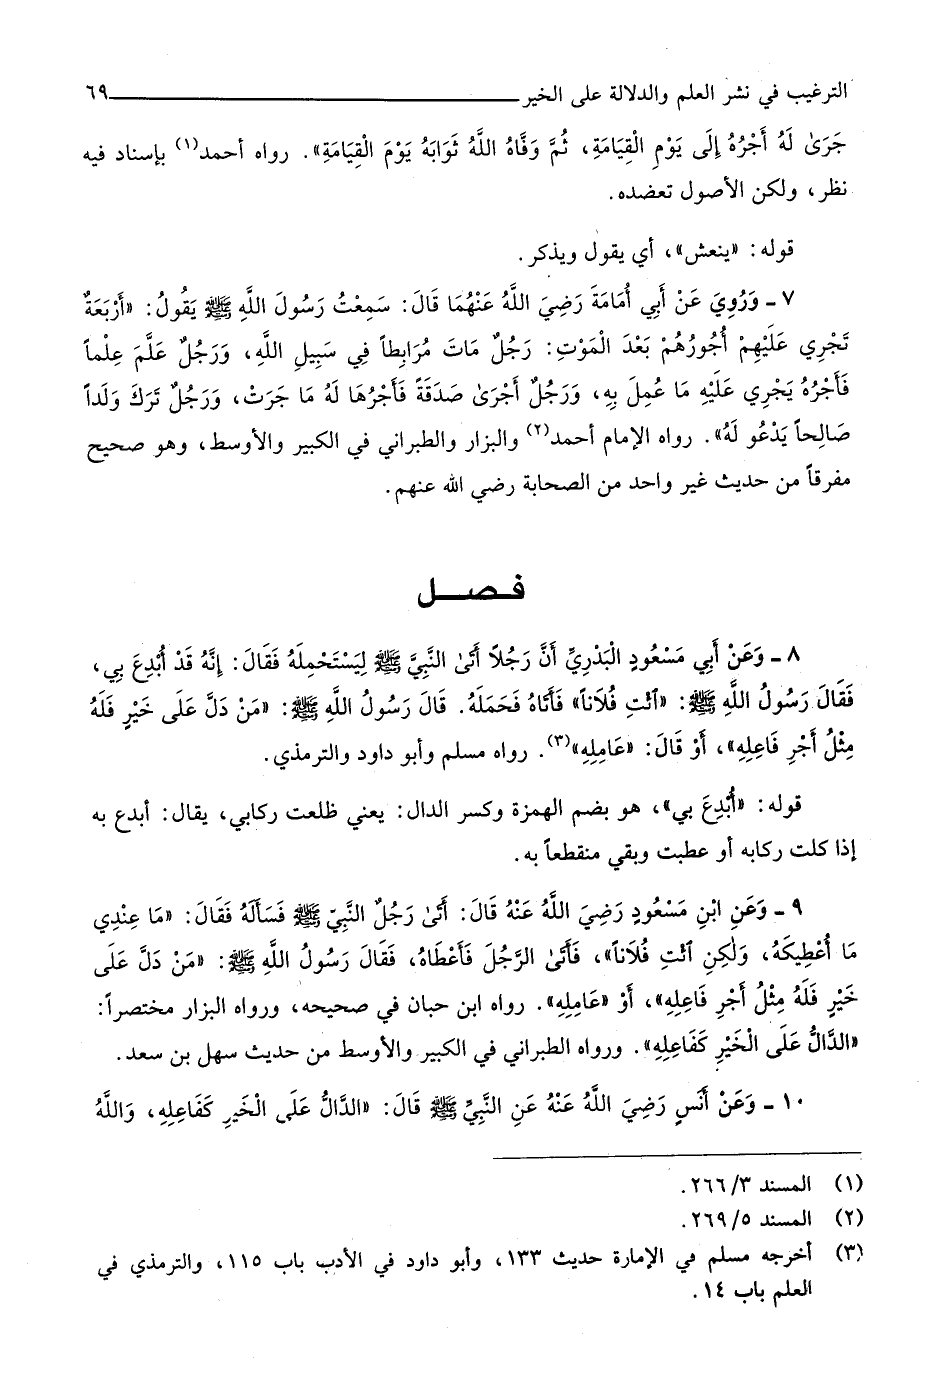 الترغيب في نشر العلم والدلالة على الخير ٦٩
جَرَىٰ لَهُ أَجْرُهُ إِلَى يَوْمِ الْقِيَامَةِ، ثُمَّ وَفَّاهُ اللَّهُ ثَوَابَهُ يَوْمَ الْقِيَامَةِ». رواه أحمد(١) بإسناد فيه
نظر، ولكن الأصول تعضده.
قوله: «ينعش»، أي يقول ويذكر.
٧ - وَرُوِيَ عَنْ أَبِي أُمَامَةَ رَضِيَ اللَّهُ عَنْهُمَا قَالَ: سَمِعْتُ رَسُولَ اللَّهِ ﷺ يَقُولُ: «أَرْبَعَةٌ
تَجْرِي عَلَيْهِمْ أُجُورُهُمْ بَعْدَ الْمَوْتِ: رَجُلٌ مَاتَ مُرَابِطاً فِي سَبِيلِ اللَّهِ، وَرَجُلٌ عَلَّمَ عِلْماً
فَأَجْرُهُ يَجْرِي عَلَيْهِ مَا عُمِلَ بِهِ، وَرَجُلٌ أَجْرَىٰ صَدَقَةً فَأَجْرُهَا لَهُ مَا جَرَتْ، وَرَجُلٌ تَرَكَ وَلَداً
صَالِحاً يَدْعُو لَهُ». رواه الإمام أحمد(٢) والبزار والطبراني في الكبير والأوسط، وهو صحيح
مفرقاً من حديث غير واحد من الصحابة رضي الله عنهم.
فـصــل
٨ - وَعَنْ أَبِي مَسْعُودٍ الْبَدْرِيِّ أَنَّ رَجُلاً أَتَىٰ النَّبِيَّ ﷺ لِيَسْتَحْمِلَهُ فَقَالَ: إِنَّهُ قَدْ أُبْدِعَ بِي،
فَقَالَ رَسُولُ اللَّهِ ﷺ: «ٱئْتِ فُلَاناً» فَأَتَاهُ فَحَمَلَهُ. قَالَ رَسُولُ اللَّهِ ﷺ: «مَنْ دَلَّ عَلَى خَيْرٍ فَلَهُ
مِثْلُ أَجْرِ فَاعِلِهِ»، أَوْ قَالَ: «عَامِلِهِ»(٣). رواه مسلم وأبو داود والترمذي.
قوله: «أُبْدِعَ بي»، هو بضم الهمزة وكسر الدال: يعني ظلعت ركابي، يقال: أبدع به
إذا كلت ركابه أو عطبت وبقي منقطعاً به.
٩ - وَعَنِ ابْنِ مَسْعُودٍ رَضِيَ اللَّهُ عَنْهُ قَالَ: أَتَىٰ رَجُلٌ النَّبِيَّ ﷺ فَسَأَلَهُ فَقَالَ: «مَا عِنْدِي
مَا أُعْطِيكَهُ، وَلَٰكِنِ ٱئْتِ فُلَاناً»، فَأَتَىٰ الرَّجُلَ فَأَعْطَاهُ، فَقَالَ رَسُولُ اللَّهِ ﷺ: «مَنْ دَلَّ عَلَى
خَيْرٍ فَلَهُ مِثْلُ أَجْرِ فَاعِلِهِ»، أَوْ «عَامِلِهِ». رواه ابن حبان في صحيحه، ورواه البزار مختصراً:
«الدَّالُّ عَلَى الْخَيْرِ كَفَاعِلِهِ». ورواه الطبراني في الكبير والأوسط من حديث سهل بن سعد.
١٠ - وَعَنْ أَنَسٍ رَضِيَ اللَّهُ عَنْهُ عَنِ النَّبِيِّ ﷺ قَالَ: «الدَّالُّ عَلَى الْخَيرِ كَفَاعِلِهِ، وَاللَّهُ
(١) المسند ٣/ ٢٦٦.
(٢) المسند ٥/ ٢٦٩.
(٣) أخرجه مسلم في الإمارة حديث ١٣٣، وأبو داود في الأدب باب ١١٥، والترمذي في
العلم باب ١٤.